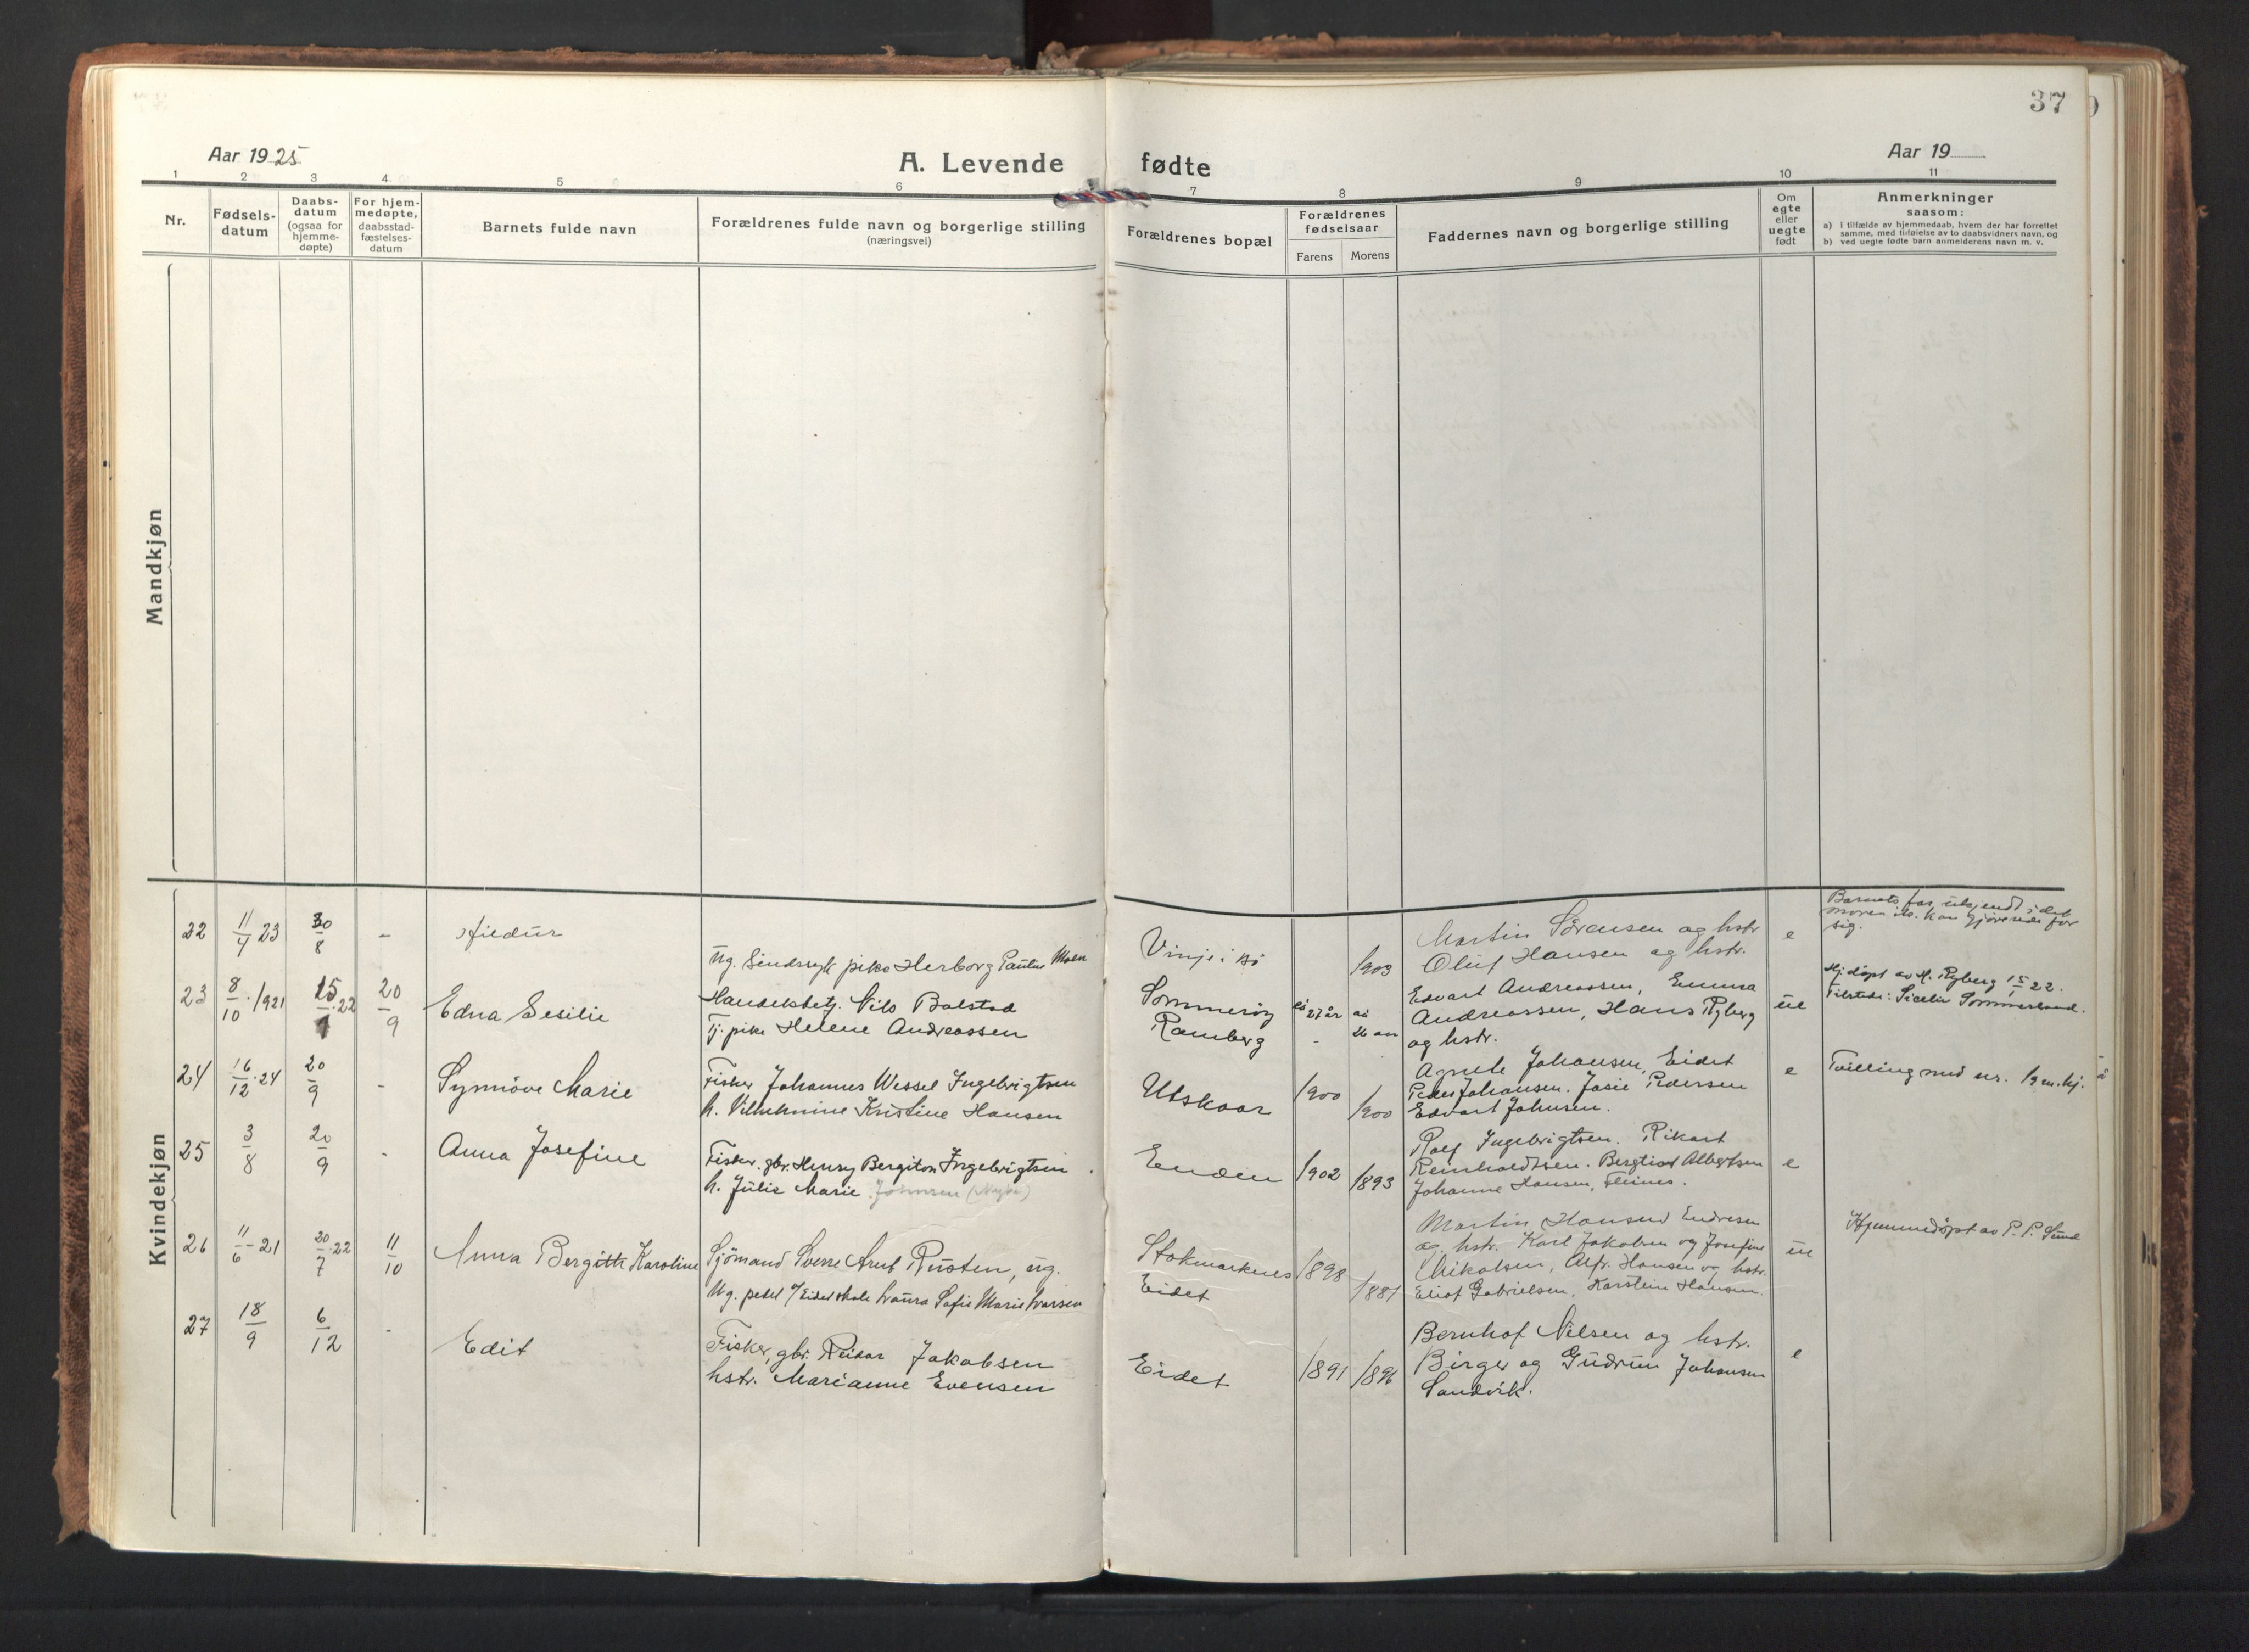 37
Aar 1925
A. Levende fødte
Aar 19
1 2 3 4 5 6 7 8 9 10 11
Nr.
Fødsels-
datum
Daabs-
datum
(ogsaa for
hjemme-
døpte)
For hjem-
medøpte,
daabsstad-
fæstelses-
datum
Barnets fulde navn
Forældrenes fulde navn og borgerlige stilling
(næringsvei)
Forældrenes bopæl
Forældrenes
fødselsaar
Farens Morens
Faddernes navn og borgerlige stilling
Om
egte
eller
uegte
født
Anmerkninger
saasom:
a) I tilfælde av hjemmedaab, hvem der har forrettet
samme, med tilføielse av to daabsvidners navn, og
b) ved uegte fødte barn anmelderens navn m. v.
Mandkjøn
Kvindekjøn
22 11/4 23 30/8 -
Ug. Sindssyk pike Herborg Pauline Moen
Vinje i Bø
1903
Martin Sørensen og hstr
Oluf Hansen og hstr.
e
Barnets far ukjendt, idet
moren ik. kan gjøre rede for
sig.
23 8/10 1921 15/1 22 20/9
Edna Sesilie
Handelsbetj. Nils Bolstad
Tj. pike Helene Andreassen
Sommerøy
Ramberg
27 år
26 aar
Edvart Andreassen, Emma
Andreassen, Hans Ryberg
og hstr.
ue
Hj.døpt av H. Ryberg 15/1 22.
Tilstede: Sommersand.
24 16/12 24 20/9 -
Synnöve Marie
Fisker Johannes Wessel Ingebrigtsen
h. Vilhelmine Kristine Hansen
Utskaar
1900 1900
Agnete Johansen, Eidet
Peder Johansen. Josie Pedersen
Edvart Johnsen.
e
Tvilling med nr. 19 m.kj.
25 3/8 20/9 -
Anna Josefine
Fisker, gbr. Henry Bergiton Ingebrigtsen
h. Julie Marie Johnsen
Enden
1902 1893
Rolf Ingebrigtsen. Rikart
Reinholdtsen. Bergtiot Albertsen
Johanne Hansen, Fleines.
e
26 11/6 - 21 20/7 22 11/10
Anna Bergitte Karoline
Sjömand Sverre Arnt Rusten, ug.
Ug. pedel v/Eidet skole Laura Sofie Marie Larsen
Stokmarknes
Eidet
1898 1881
Martin Hansen Endresen
og hstr. Karl Jakobsen og Josefine
Mikalsen, Alfr. Hansen og hstr.
Eliot Gabrielsen, Karstein Hansen
ue
Hjemmedøpt av P. P. Sund
27 18/9 6/12 -
Edit
Fisker, gbr. Reidar Jakobsen
hstr. Marianne Evensen
Eidet
1891 1896
Bernhof Nilsen og hstr.
Birger og Gudrun Johansen
Sandvik.
e